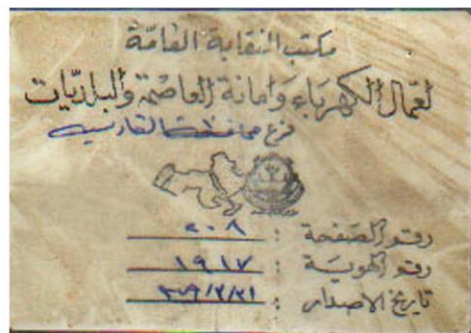 مكتب النقابة العامة
لعمال الكهرباء وامانة العاصمة والبلديات
فرع محافظة القادسية
رقم الصفحة : ٢٠٨
رقم الهوية : ١٩١٧
تاريخ الاصدار :